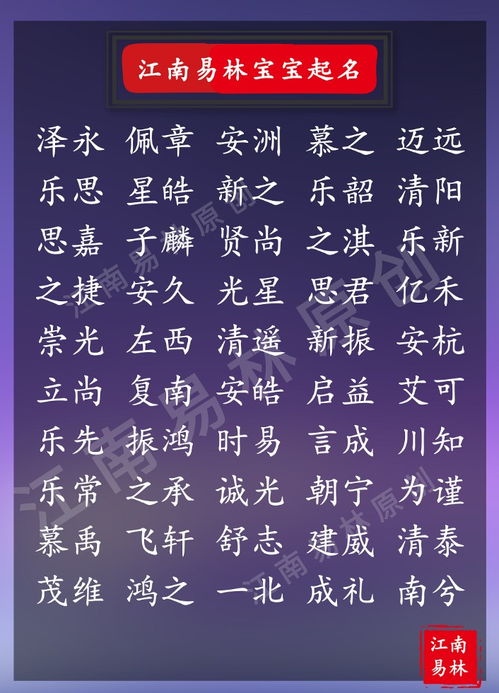 江南易林宝宝起名
泽永 佩章 安洲 慕之 迈远
乐思 星皓 新之 乐韶 清阳
思嘉 子麟 贤尚 之淇 乐新
之捷 安久 光星 思君 亿禾
崇光 左西 清遥 新振 安杭
立尚 复南 安皓 启益 艾可
乐先 振鸿 时易 言成 川知
乐常 之承 诚光 朝宁 为谨
慕禹 飞轩 舒志 建威 清泰
茂维 鸿之 一北 成礼 南兮
江南易林原创
江南易林原创
江南易林原创
江南
易林